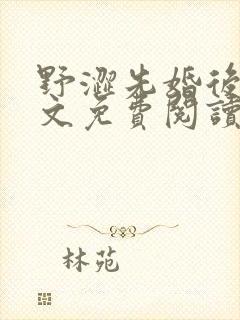 野澀先婚後
文免費閱讀
林苑